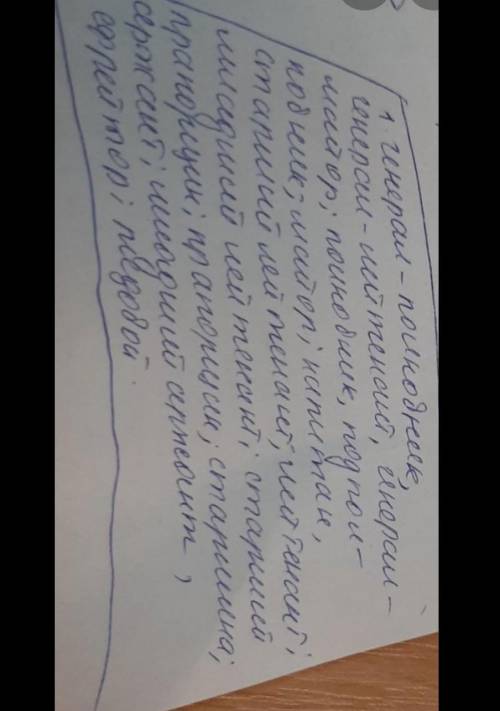 1. Генерал-полковник,
генерал-лейтенант, генерал-
майор; полковник, подпол-
ковник; майор; капитан,
старший лейтенант; лейтенант;
младший лейтенант; старший
прапорщик; прапорщик; старшина;
сержант; младший сержант,
ефрейтор; рядовой.